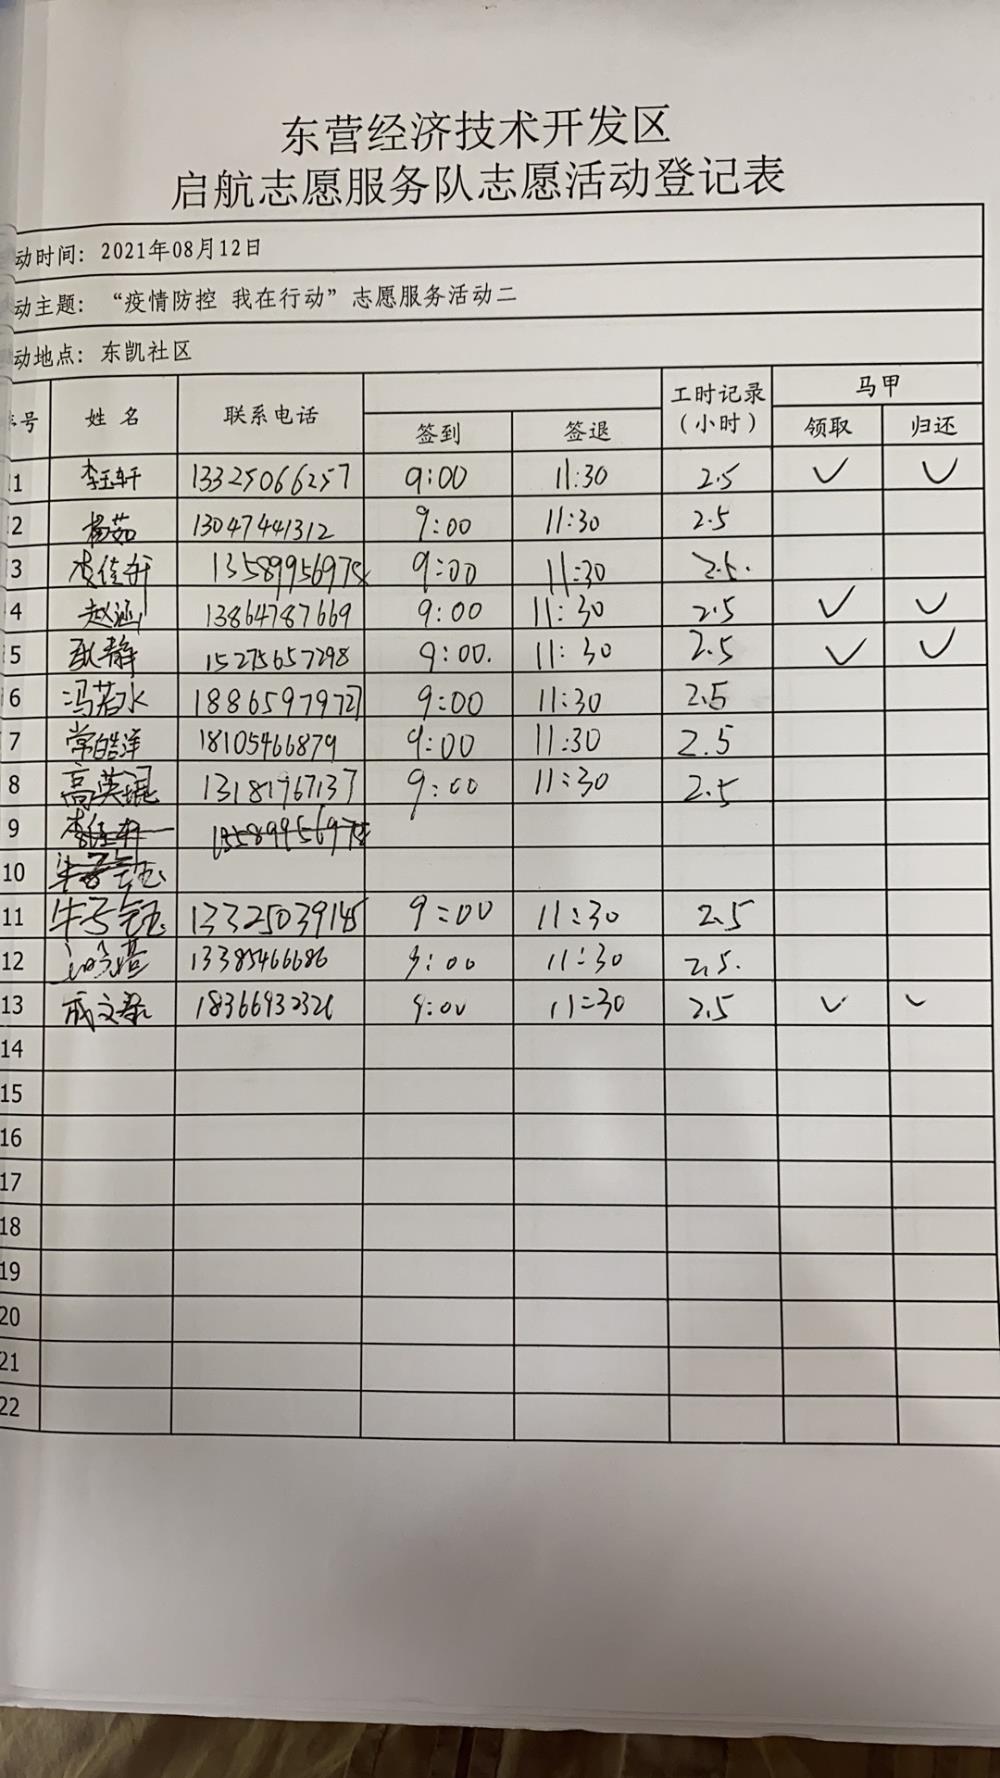 东营经济技术开发区
启航志愿服务队志愿活动登记表
动时间：2021年08月12日
动主题：“疫情防控 我在行动”志愿服务活动二
动地点：东凯社区
序号 姓 名 联系电话 签到 签退 工时记录（小时） 马甲 领取 归还
1 李玉轩 13325066257 9:00 11:30 2.5 ✓ ✓
2 杨茹 13047441312 9:00 11:30 2.5
3 李佳轩 9:00 11:30 2.5.
4 赵涵 13864787669 9:00 11:30 2.5 ✓ ✓
5 耿静 15275657298 9:00. 11:30 2.5 ✓ ✓
6 冯若水 9:00 11:30 2.5
7 常皓洋 18105466879 9:00 11:30 2.5
8 高英琨 13181967137 9:00 11:30 2.5
9
10
11 牛子钰 13325039145 9:00 11:30 2.5
12 13385466686 9:00 11:30 2.5.
13 9:00 11:30 2.5 ✓ ✓
14
15
16
17
18
19
20
21
22